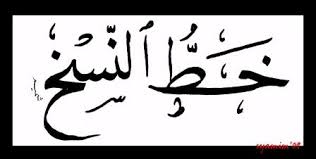 خَطُّ النَّسْخ